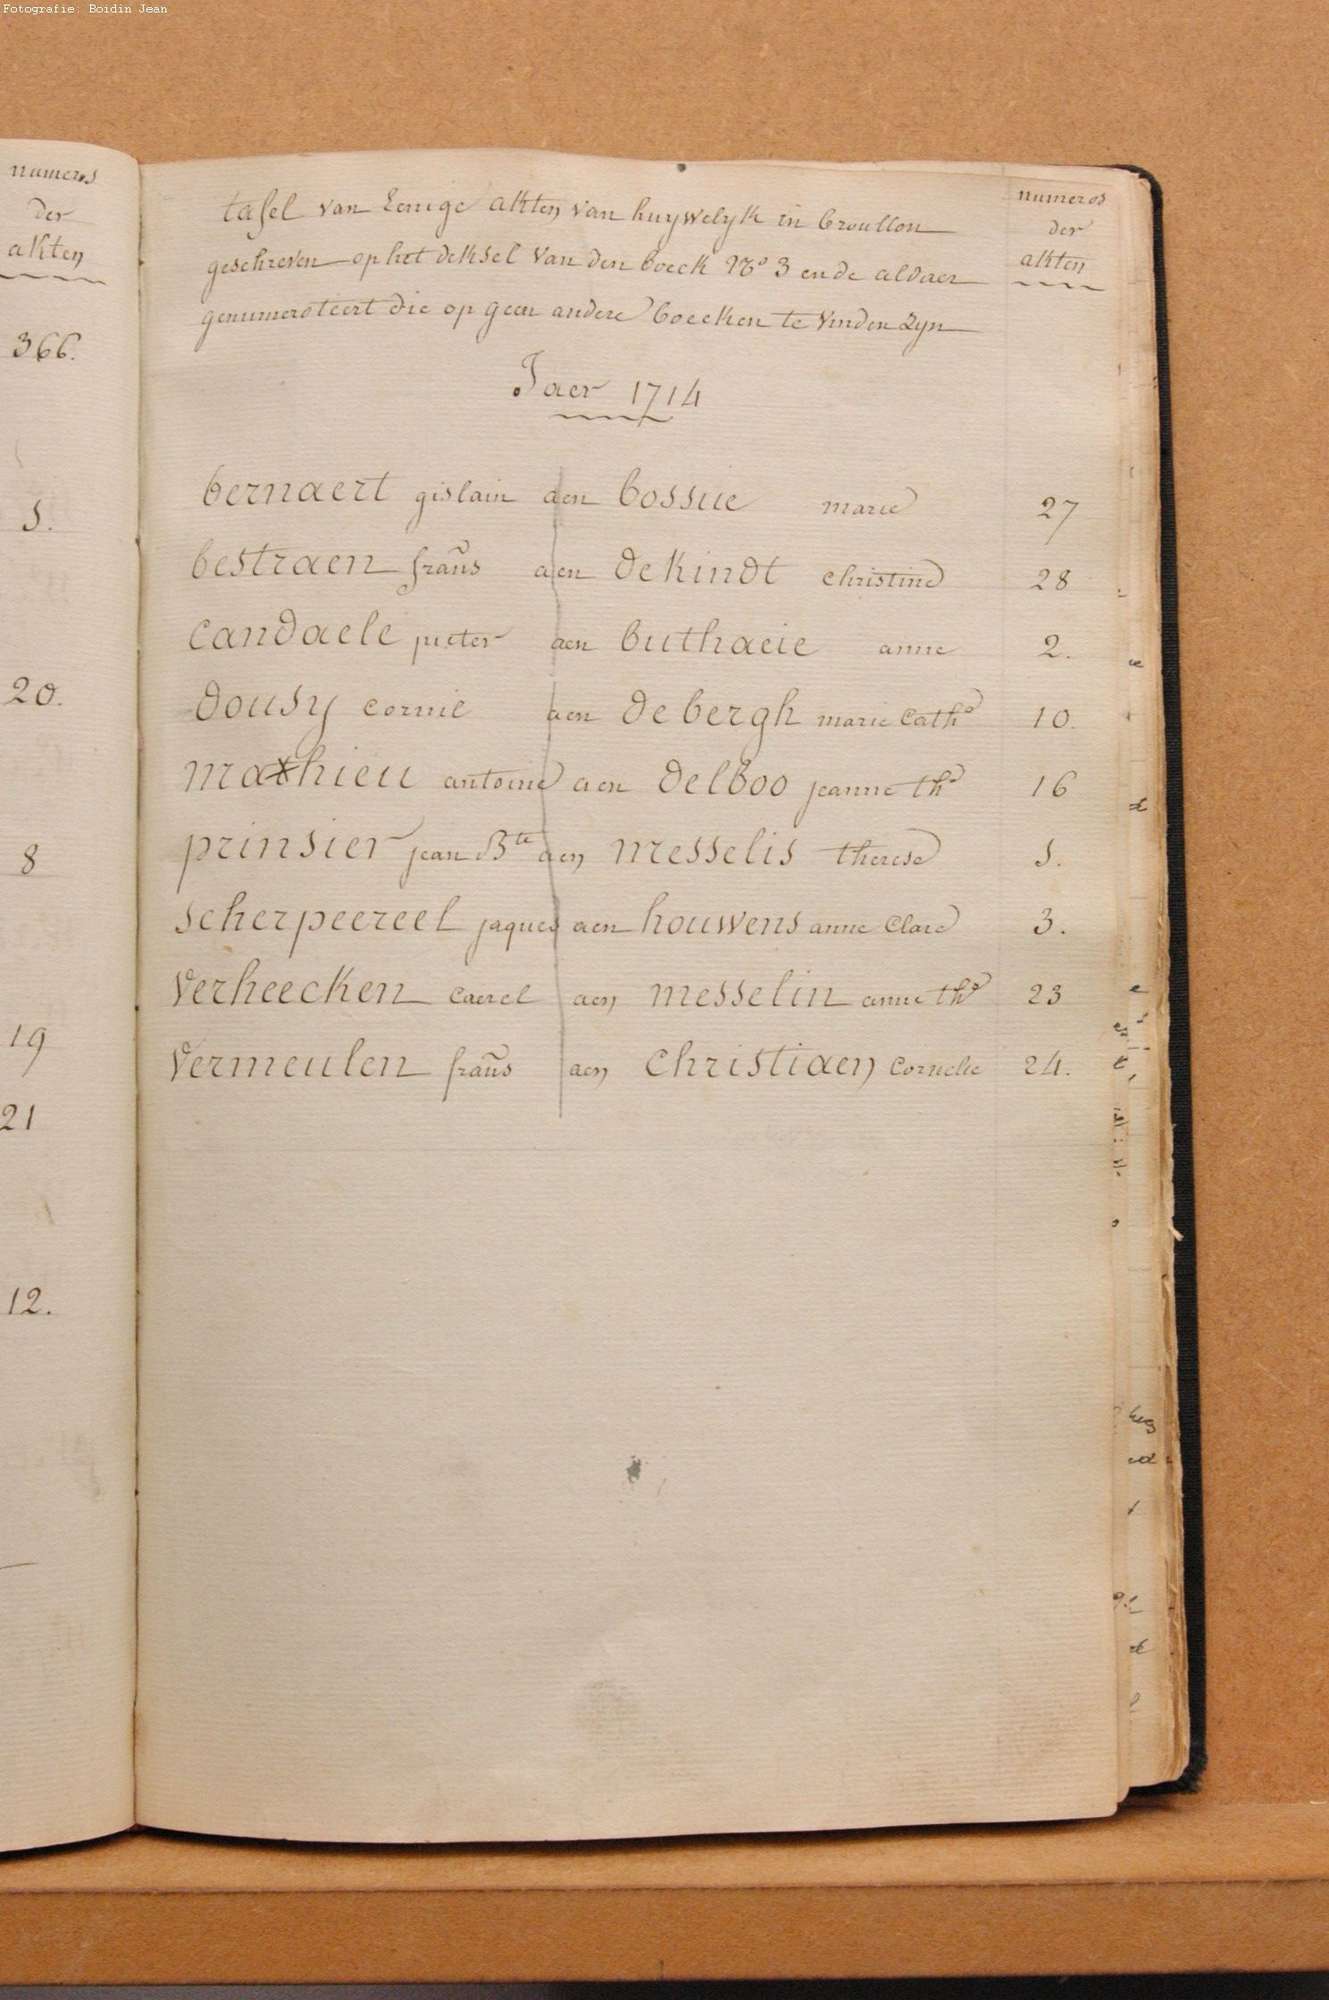 Fotografie: Boidin Jean
numeros
der
akten
366.
5.
20.
8
19
21
12.
tafel van Eenige akten van huywelyk in brouillon
geschreven op het deksel van den boeck No 3 ende aldaer
genumeroteert die op geen andere boecken te vinden zyn
numeros
der
akten
Jaer 1714
bernaert gislain aen bossue marie 27
bestraen frans aen dekindt christine 28
candaele pieter aen buthaeie anne 2.
dousy cornie aen debergh marie cath.e 10.
mathieu antoine aen delboo jeanne th.e 16
prinsier jean Bte aen messelis therese 5.
scherpeereel jaques aen houwens anne clare 3.
verheecken caerel aen messelin anne th.e 23
vermeulen frans aen christiaen cornelie 24.